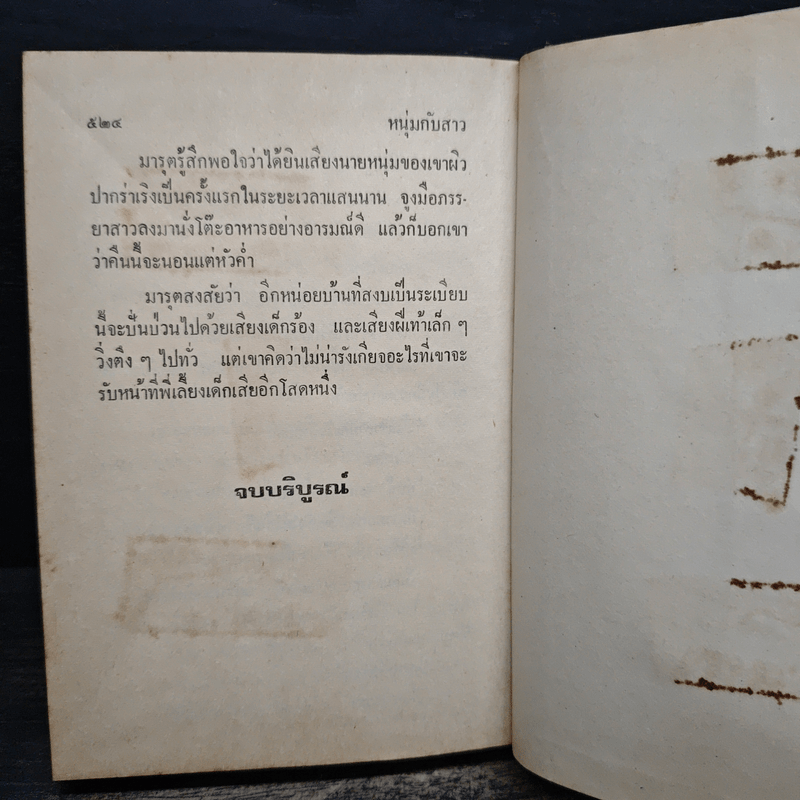 ๕๒๔ หนุ่มกับสาว
มารุตรู้สึกพอใจว่าได้ยินเสียงนายหนุ่มของเขาผิว
ปากร่าเริงเป็นครั้งแรกในระยะเวลาแสนนาน จูงมือภรร-
ยาสาวลงมานั่งโต๊ะอาหารอย่างอารมณ์ดี แล้วก็บอกเขา
ว่าคืนนี้จะนอนแต่หัวค่ำ
มารุตสงสัยว่า อีกหน่อยบ้านที่สงบเป็นระเบียบ
นี้จะปั่นป่วนไปด้วยเสียงเด็กร้อง และเสียงฝีเท้าเล็ก ๆ
วิ่งตึง ๆ ไปทั่ว แต่เขาคิดว่าไม่น่ารังเกียจอะไรที่เขาจะ
รับหน้าที่พี่เลี้ยงเด็กเสียอีกโสดหนึ่ง
จบบริบูรณ์